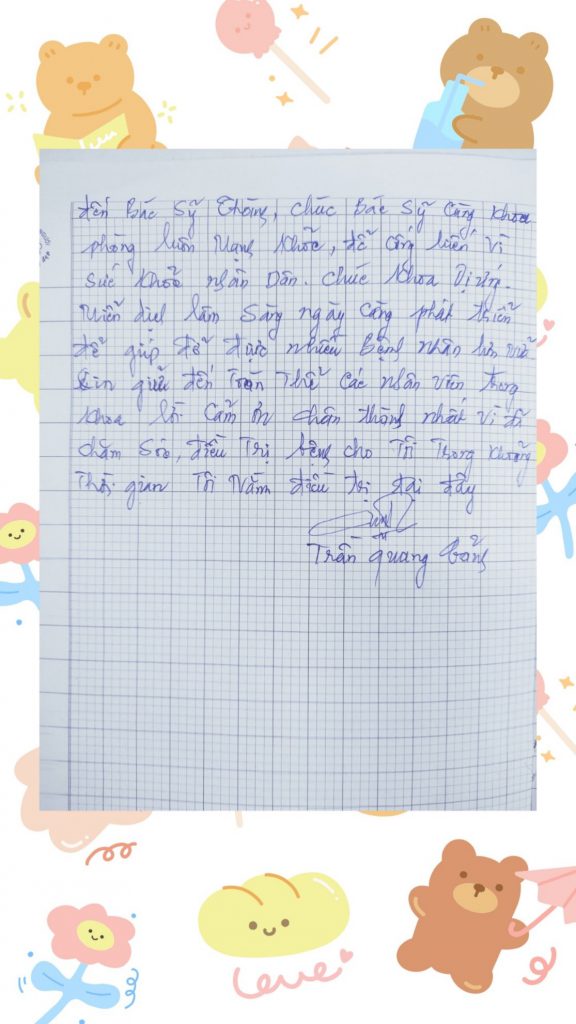 đến Bác Sỹ Thông, chúc Bác Sỹ Cùng Khoa
phòng luôn Mạng Khỏe, để Cống hiến Vì
Sức Khỏe nhân Dân. Chúc Khoa Dị ứng.
Miễn dịch lâm Sàng ngày Càng phát triển
để giúp đỡ được nhiều Bệnh nhân hơn nữa
Xin gửi đến Toàn Thể Các nhân viên trong
Khoa lời Cảm ơn chân thông nhất Vì đã
chăm Sóc, điều Trị bệnh cho Tôi Trong Khoảng
Thời gian Tôi Nằm điều trị đại đây
Trần quang
love